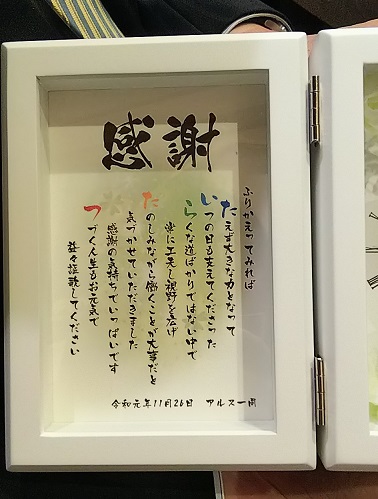 感謝
ふりかえってみれば
たえず大きな力となって
いつの日も支えてくださった
らくな道ばかりではない中で
常に工夫し視野を広げ
たのしみながら働くことが大事だと
気づかせていただきました
感謝の気持ちでいっぱいです
つづく人生もお元気で
益々謳歌してください
令和元年11月26日 アルス一同